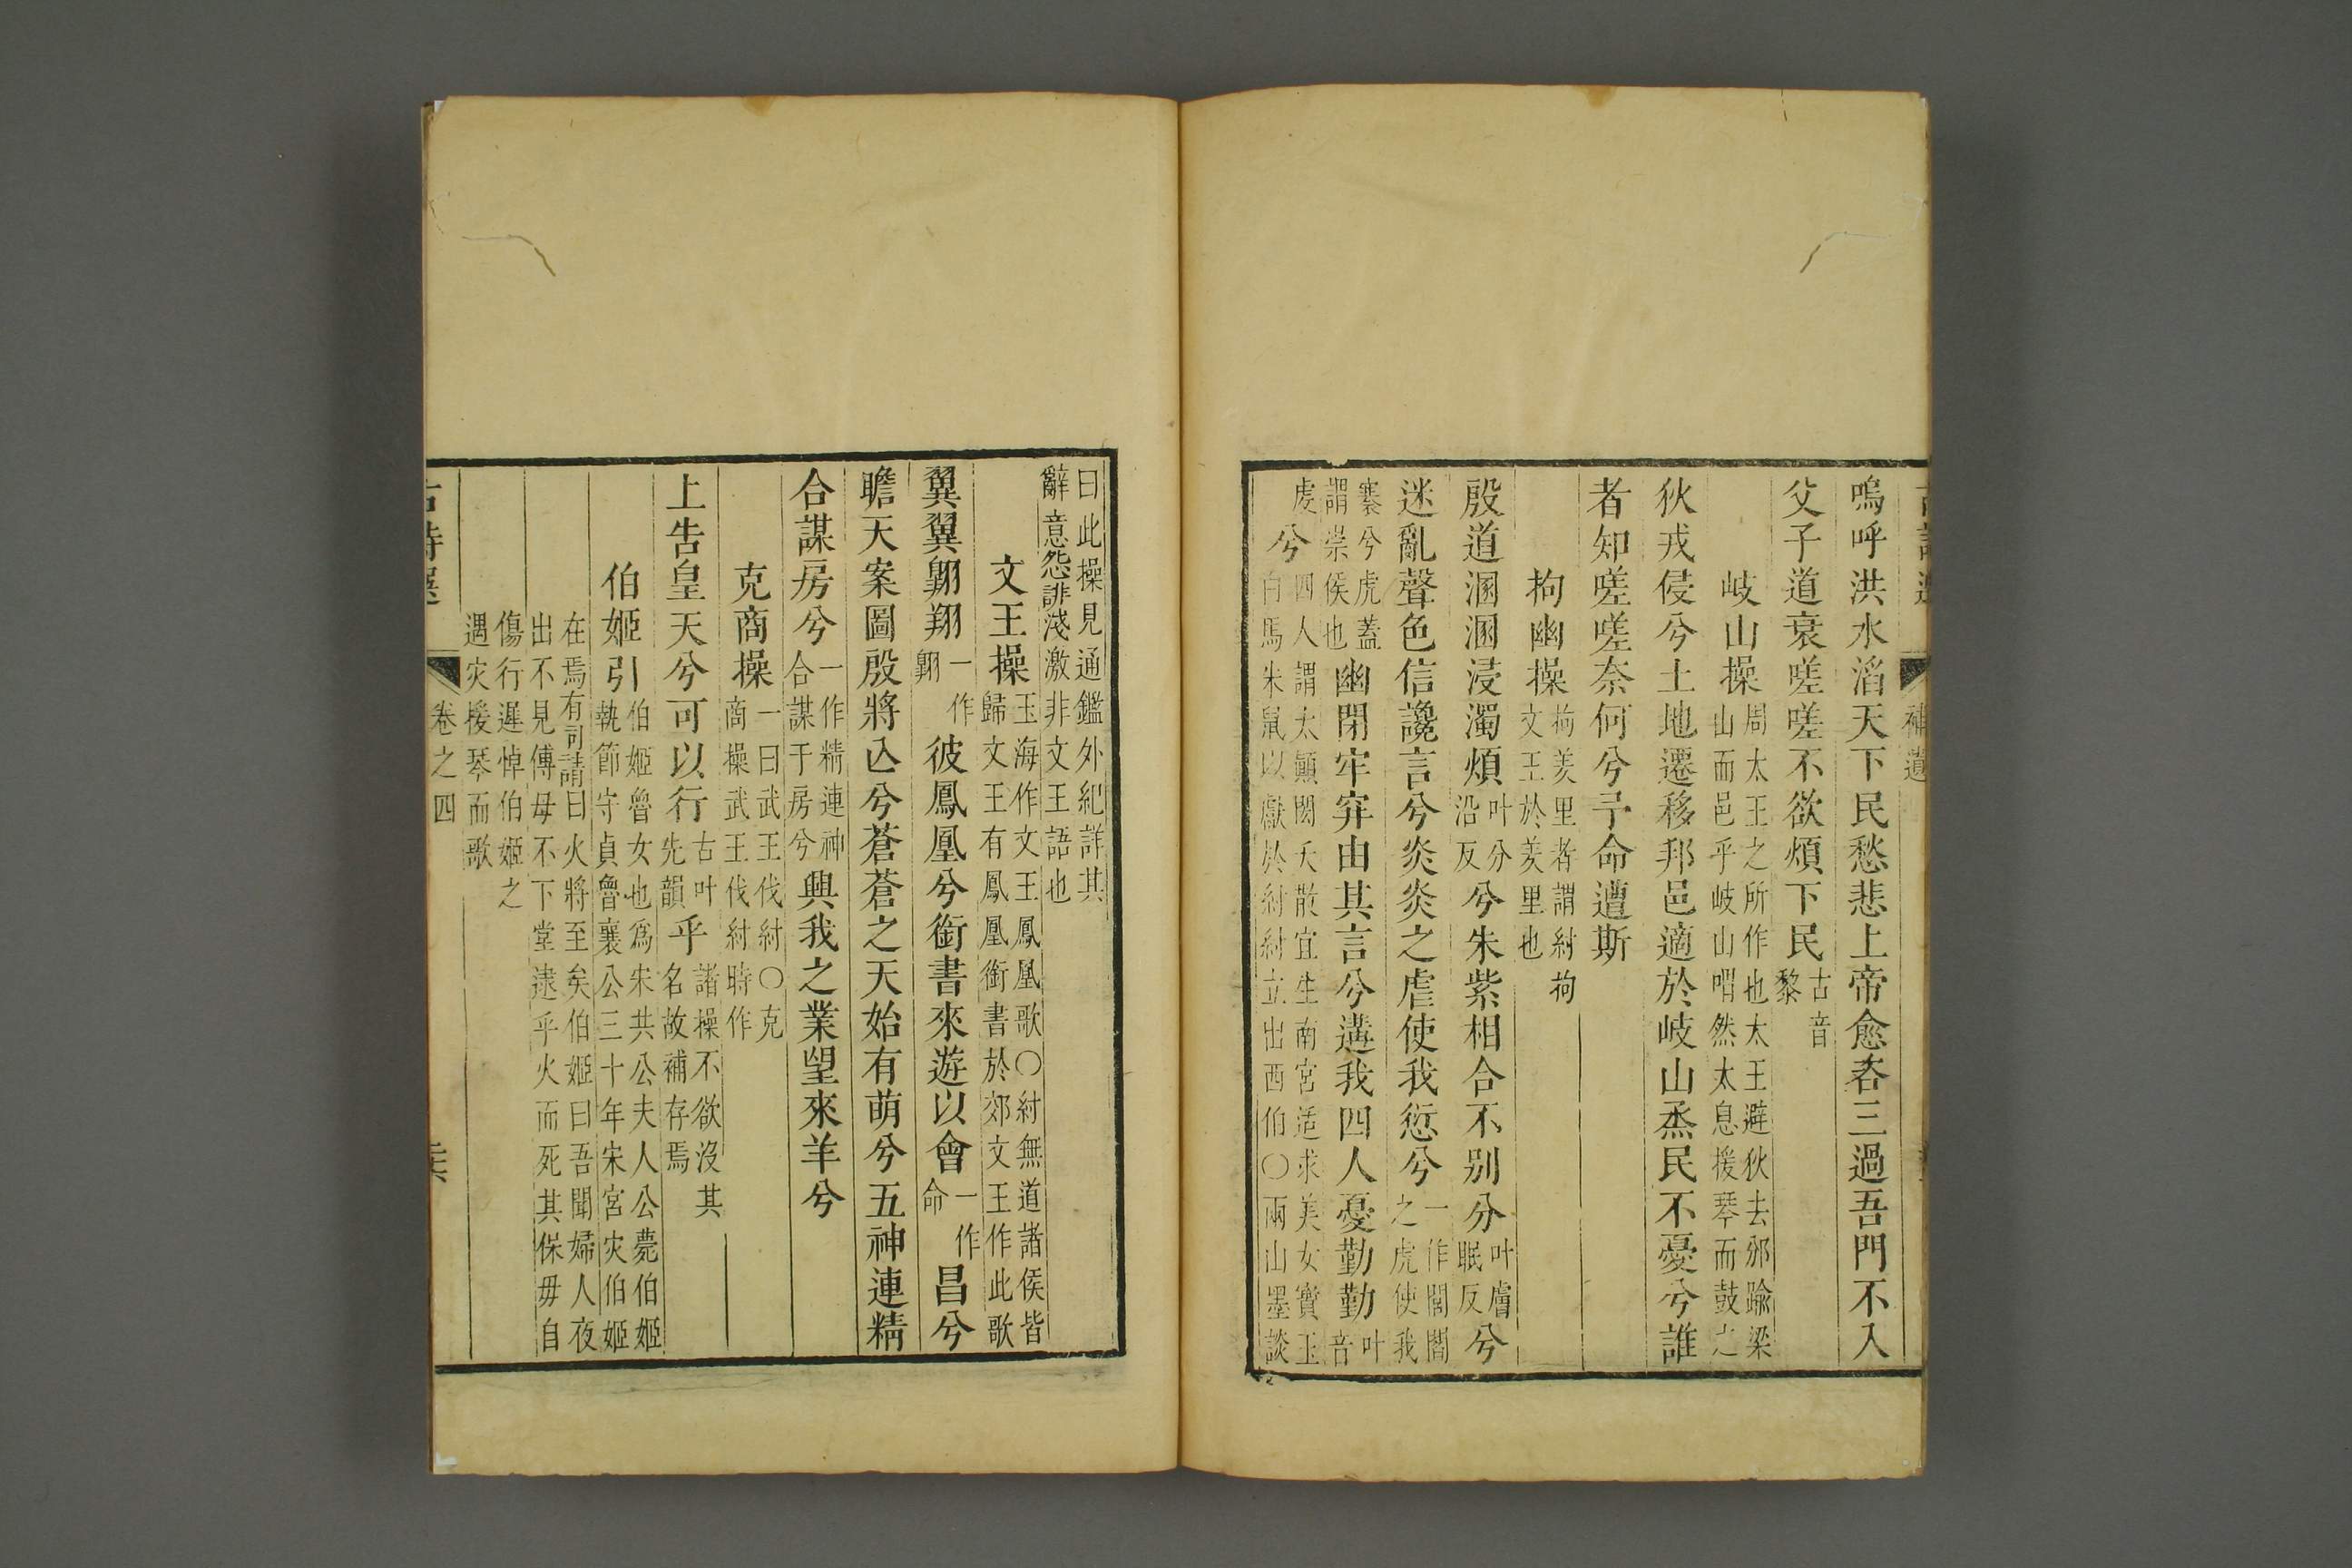 嗚呼洪水滔天下民愁悲上帝愈咨三過吾門不入
父子道衰嗟嗟不欲煩下民古音黎
岐山操周太王之所作也太王避狄去邠踰梁山而邑乎岐山喟然太息援琴而鼓之
狄戎侵兮土地遷移邦邑適於岐山烝民不憂兮誰
者知嗟嗟奈何兮予命遭斯
拘幽操拘羑里者謂紂拘文王於羑里也
殷道溷溷浸濁煩叶分沿反兮朱紫相合不别分叶膚眠反兮
迷亂聲色信讒言兮炎炎之虐使我愆兮一作閻閻之虎使我
褰兮虎蓋謂崇侯也幽閉牢穽由其言兮遘我四人憂勤勤叶音
虔兮四人謂太顚閎夭散宜生南宫适求美女寳玉白馬朱鼠以獻於紂紂立出西伯〇兩山墨談
曰此操見通鑑外紀詳其辭意怨誹淺激非文王語也
文王操玉海作文王鳳凰歌〇紂無道諸侯皆歸文王有鳳凰銜書於郊文王作此歌
翼翼翺翔一作翺彼鳳凰兮銜書來遊以會一作命昌兮
瞻天案圖殷將亾兮蒼蒼之天始有萌兮五神連精
合謀房兮一作精連神合謀于房兮興我之業望來羊兮
克商操一曰武王伐紂〇克商操武王伐紂時作
上告皇天兮可以行古叶先韻乎諸操不欲没其名故補存焉
伯姬引伯姬魯女也爲宋共公夫人公薨伯姬執節守貞魯襄公三十年宋宮灾伯姬
在焉有司請曰火將至矣伯姬曰吾聞婦人夜出不見傅毋不下堂逮乎火而死其保毋自
傷行遲悼伯姬之遇灾援琴而歌
卷之四